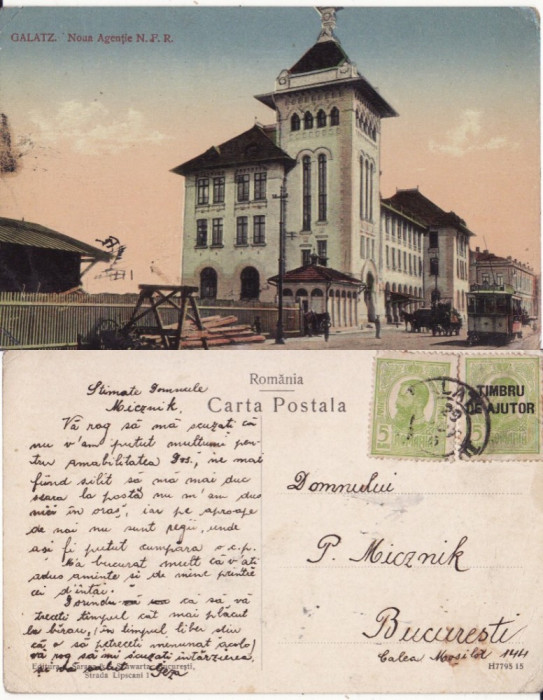 GALATZ. Noua Agenție N. F. R.
România
Carta Postala
5
TIMBRU
DE AJUTOR
5
Stimate Domnule
Micznik.
Vă rog să mă scuzați că
nu v'am putut mulțumi pen-
tru amabilitatea Dvs., ne mai
fiind silit să mă mai duc
seara la poștă nu m'am dus
nici în oraș, iar pe aproape
de noi nu sunt regii, unde
ași fi putut cumpara o c.p.
M'a bucurat mult că v'ati
adus aminte și de mine printre
cei d'intai.
Dorindu-vă ca să vă
treceti timpul cât mai plăcut
la birou, (în timpul liber știu
că o să petreceti minunat acolo)
vă rog să mi scuzati întârzierea
Geza
Domnului
P. Micznik
București
Calea Mosilor 144
București,
Strada Lipscani 1
H7795 15